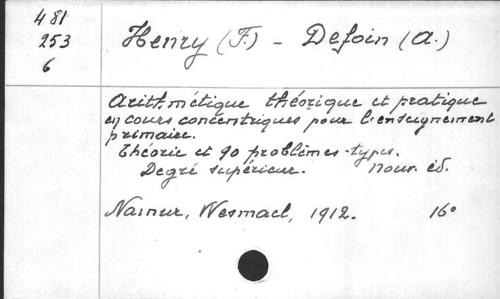 481
253
6
Henry (F.) - Defoin (A.)
Arithmétique théorique et pratique
en cours concentriques pour l'enseignement
primaire.
Théorie et 90 problèmes-types.
Degré supérieur. Nouv. éd.
Namur, Wesmael, 1912. 16°